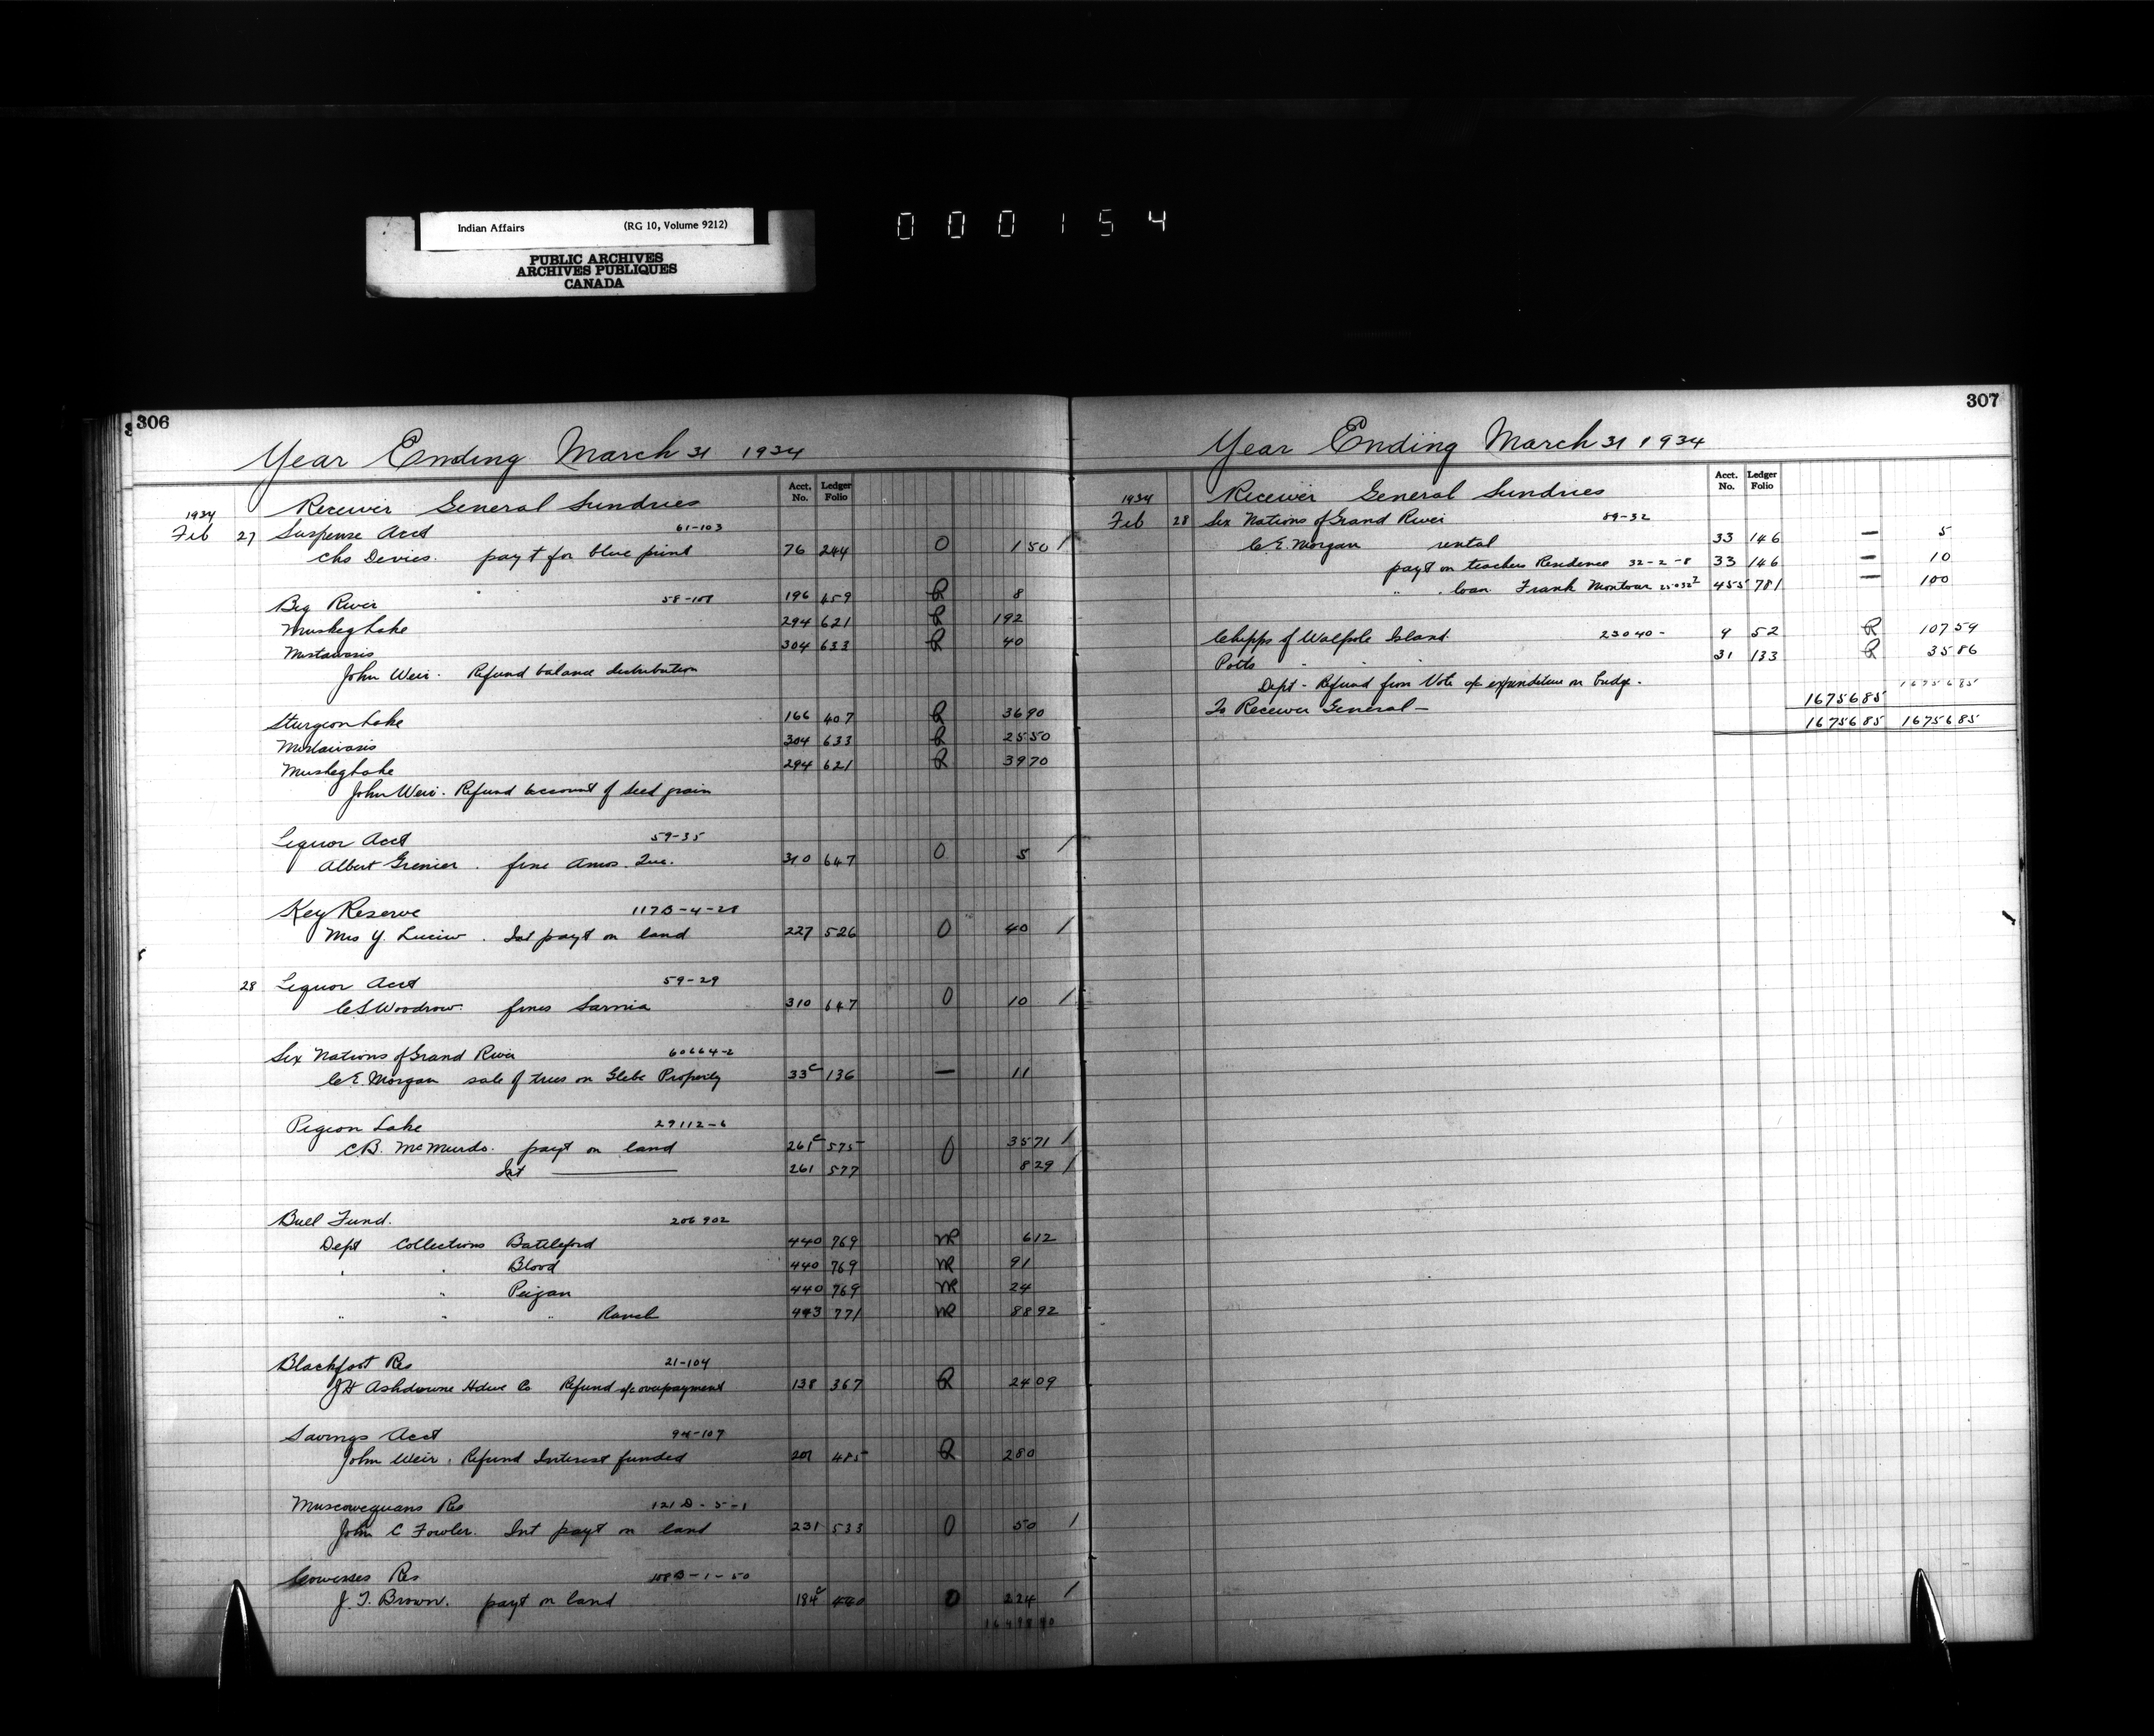 Indian Affairs (RG 10, Volume 9212)
PUBLIC ARCHIVES
ARCHIVES PUBLIQUES
CANADA
000154
306
Year Ending March 31 1934
Acct. No. Ledger Folio
Receiver General Sundries
1934
Feb 27 Suspense Acct 61-103
Chs Devies. payt for blue print 76 244 O 1 50 /
Big River 58-108 196 459 R 8
Muskeg Lake 294 621 R 192
Mistawasis 304 633 R 40
John Weir. Refund balance distribution
Sturgeon Lake 166 407 R 36 90
Mistawasis 304 633 R 25 50
Muskeg Lake 294 621 R 39 70
John Weir. Refund account of seed grain
Liquor Acct 59-35
Albert Grenier. fine Amos. Que. 310 647 O 5 /
Key Reserve 117B-4-28
Mrs Y. Luciw. Int payt on land 227 526 O 40 /
28 Liquor Acct 59-29
C S Woodrow. fines Sarnia 310 647 O 10 /
Six Nations of Grand River 60664-2
C E. Morgan sale of trees on Glebe Property 33c 136 — 11
Pigeon Lake 29112-6
C B. McMurdo. payt on land 261c 575 O 35 71 /
Int —— 261 577 8 29 /
Bull Fund. 206902
Dept Collections Battleford 440 769 NR 6 12
" " Blood 440 769 NR 91
" Peigan 440 769 NR 24
" " " Ranch 443 771 NR 88 92
Blackfoot Res 21-104
J H Ashdowne Hdwe Co Refund a/c overpayment 138 367 R 24 09
Savings Acct 94-107
John Weir. Refund Interest funded 201 485 R 2 80
Muscowequans Res 121D-5-1
John C Fowler. Int payt on land 231 533 O 50 /
Cowesses Res 108B-1-50
J. T. Brown. payt on land 184c 460 O 224 /
16498 40
307
Year Ending March 31 1934
Acct. No. Ledger Folio
1934 Receiver General Sundries
Feb 28 Six Nations of Grand River 89-32
C E. Morgan rental 33 146 — 5
payt on teachers Residence 32-2-8 33 146 — 10
" . loan Frank Montour 455 781 — 100
Chipps of Walpole Island. 23040- 9 52 R 107 59
Potts " " " 31 133 R 35 86
Dept - Refund from Vote of expenditure on bridge.
16756 85
To Receiver General — 16756 85
16756 85 16756 85